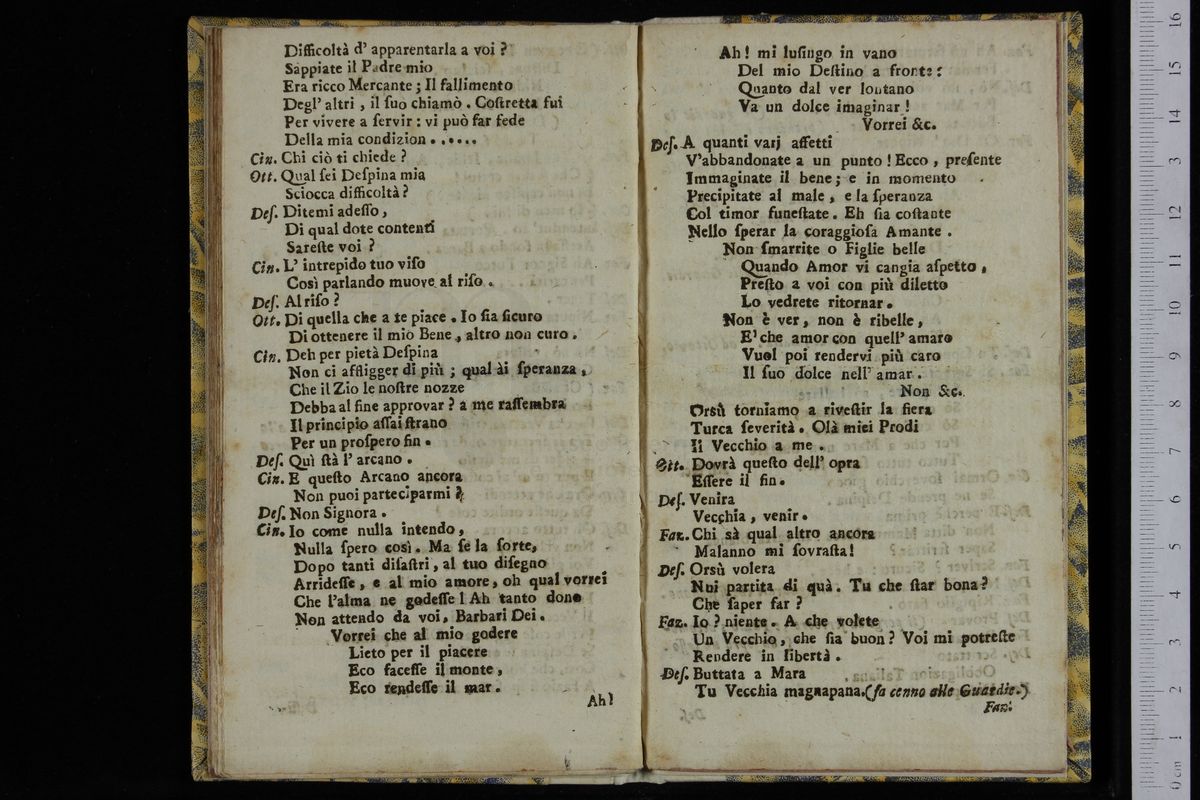 Difficoltà d' apparentarla a voi ?
Sappiate il Padre mio
Era ricco Mercante ; Il fallimento
Degl' altri , il ſuo chiamò . Coſtretta fui
Per vivere a ſervir : vi può far fede
Della mia condizion . . . . . .
Cin. Chi ciò ti chiede ?
Ott. Qual ſei Deſpina mia
Sciocca difficoltà ?
Deſ. Ditemi adeſſo ,
Di qual dote contenti
Sareſte voi ?
Cin. L' intrepido tuo viſo
Così parlando muove al riſo .
Deſ. Al riſo ?
Ott. Di quella che a te piace . Io ſia ſicuro
Di ottenere il mio Bene , altro non curo .
Cin. Deh per pietà Deſpina
Non ci affligger di più ; qual ài ſperanza ,
Che il Zio le noſtre nozze
Debba al fine approvar ? a me raſſembra
Il principio aſſai ſtrano
Per un proſpero fin .
Deſ. Quì ſtà l' arcano .
Cin. E queſto Arcano ancora
Non puoi parteciparmi ?
Deſ. Non Signora .
Cin. Io come nulla intendo ,
Nulla ſpero così . Ma ſe la ſorte,
Dopo tanti diſaſtri , al tuo diſegno
Arrideſſe , e al mio amore, oh qual vorrei
Che l'alma ne godeſſe ! Ah tanto dono
Non attendo da voi, Barbari Dei .
Vorrei che al mio godere
Lieto per il piacere
Eco faceſſe il monte ,
Eco rendeſſe il mar .
Ah!
Ah ! mi luſingo in vano
Del mio Deſtino a fronte :
Quanto dal ver lontano
Va un dolce imaginar !
Vorrei &c.
Deſ. A quanti varj affetti
V'abbandonate a un punto ! Ecco , preſente
Immaginate il bene ; e in momento
Precipitate al male , e la ſperanza
Col timor funeſtate . Eh ſia coſtante
Nello ſperar la coraggioſa Amante .
Non ſmarrite o Figlie belle
Quando Amor vi cangia aſpetto ,
Preſto a voi con più diletto
Lo vedrete ritornar .
Non è ver , non è ribelle ,
E' che amor con quell' amaro
Vuol poi rendervi più caro
Il ſuo dolce nell' amar .
Non &c.
Orsù torniamo a riveſtir la fiera
Turca ſeverità . Olà miei Prodi
Il Vecchio a me .
Ott. Dovrà queſto dell' opra
Eſſere il fin .
Deſ. Venira
Vecchia , venir .
Faz. Chi sà qual altro ancora
Malanno mi ſovraſta !
Deſ. Orsù volera
Nui partita di quà . Tu che ſtar bona ?
Che ſaper far ?
Faz. Io ? niente . A che volete
Un Vecchio , che ſia buon ? Voi mi potreſte
Rendere in libertà .
Deſ. Buttata a Mara
Tu Vecchia magnapana. (fa cenno alle Guardie.)
Faz.